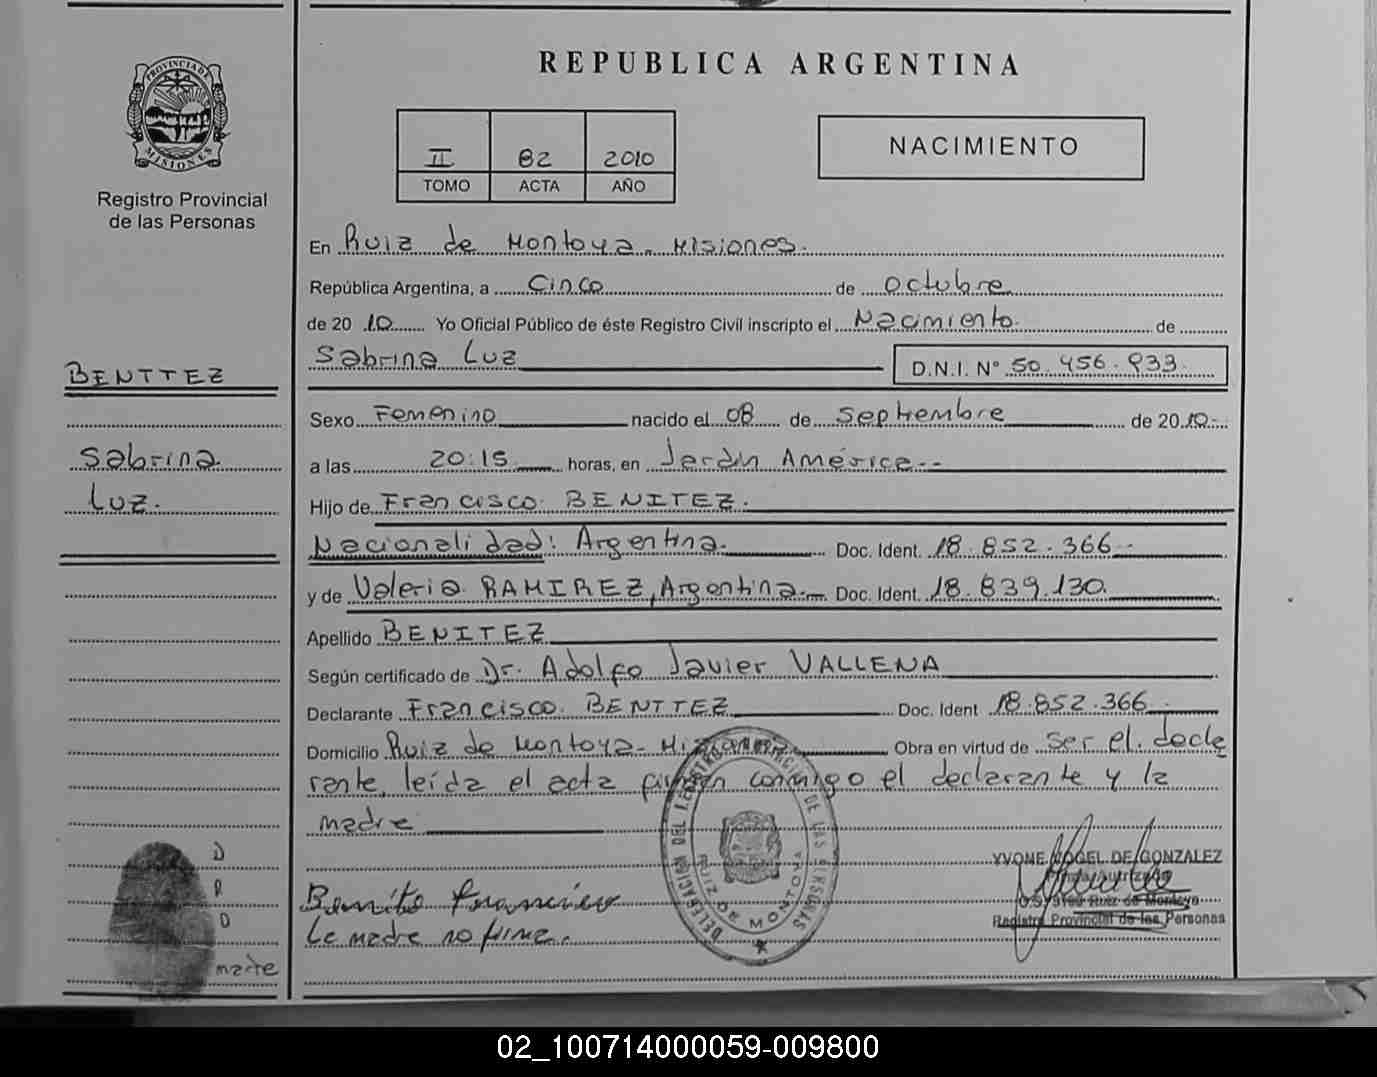 REPUBLICA ARGENTINA
PROVINCIA DE MISIONES
Registro Provincial
de las Personas
II 82 2010
TOMO ACTA AÑO
NACIMIENTO
En Ruiz de Montoya - Misiones.
República Argentina, a Cinco de octubre
de 20 10 Yo Oficial Público de éste Registro Civil inscripto el Nacimiento de
Sabrina Luz D.N.I. N° 50.456.933
BENITEZ
Sabrina
Luz.
Sexo Femenino nacido el 08 de septiembre de 20 10
a las 20:15 horas, en Jardín América
Hijo de Francisco BENITEZ.
Nacionalidad: Argentina. Doc. Ident. 18.852.366
y de Valeria RAMIREZ, Argentina. Doc. Ident. 18.839.130.
Apellido BENITEZ
Según certificado de Dr. Adolfo Javier VALLENA
Declarante Francisco BENITEZ Doc. Ident 18.852.366
Domicilio Ruiz de Montoya - Misiones Obra en virtud de ser el decla
rante, leída el acta firman conmigo el declarante y la
madre
D
P
D
madre
Benito Francisco
La madre no firma.
DELEGACION DEL REGISTRO PROVINCIAL DE LAS PERSONAS
RUIZ DE MONTOYA
YVONE VOGEL DE GONZALEZ
Firma Autorizada
Ruiz de Montoya
Registro Provincial de las Personas
02_100714000059-009800